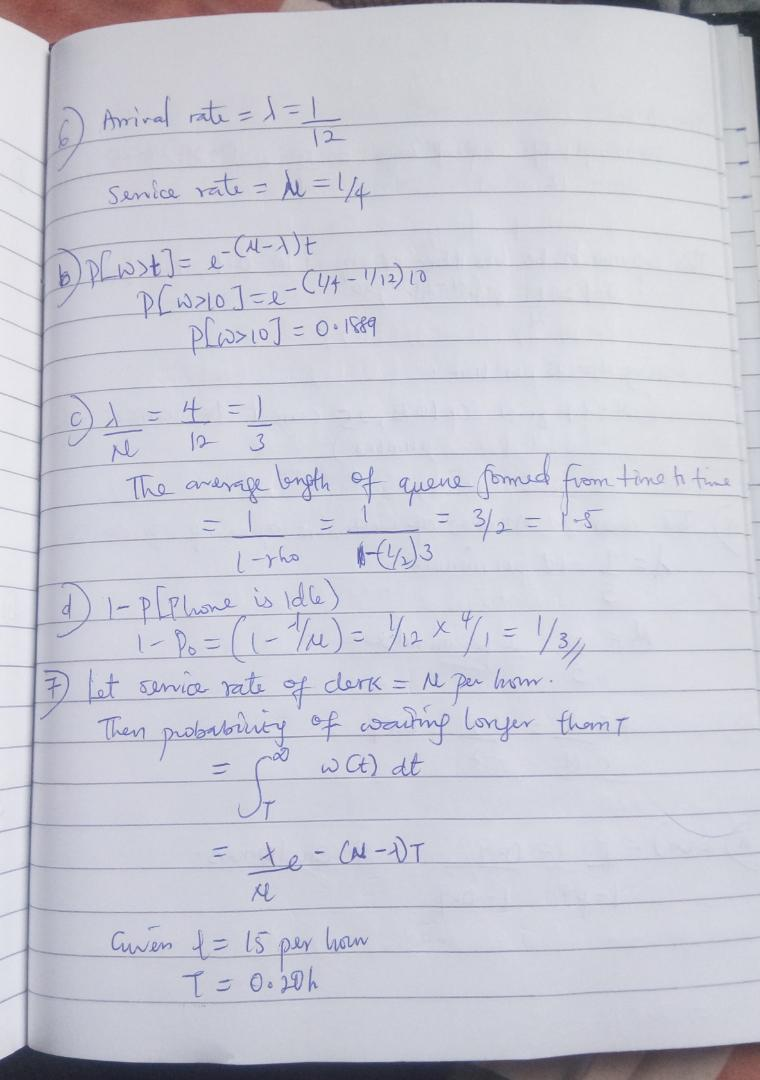 6) Arrival rate = λ = 1/12
Service rate = μ = 1/4
b) P[w>t] = e-(μ-λ)t
P[w>10] = e-(1/4 - 1/12)10
P[w>10] = 0.1889
c) λ/μ = 4/12 = 1/3
The average length of queue formed from time to time
= 1/(1-rho) = 1/(1-(1/2)3) = 3/2 = 1.5
d) 1 - P[Phone is Idle)
1 - P0 = (1 - λ/μ) = 1/12 x 4/1 = 1/3//
7) Let service rate of clerk = μ per hour.
Then probability of waiting longer than T
= ∫T∞ w(t) dt
= λ/μ e-(μ-λ)T
Given λ = 15 per hour
T = 0.20h